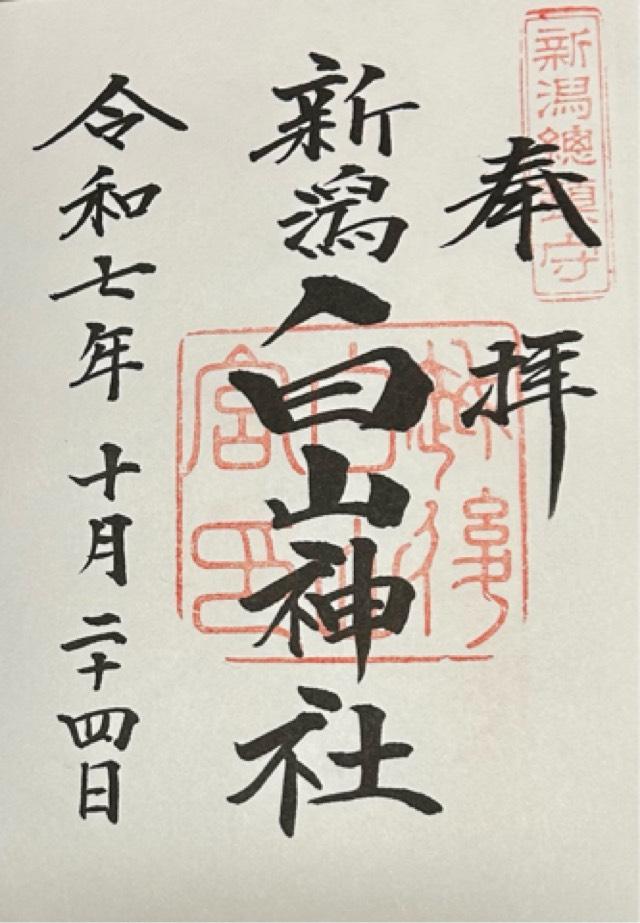 新潟總鎮守
奉拝
新潟白山神社
令和七年十月二十四日